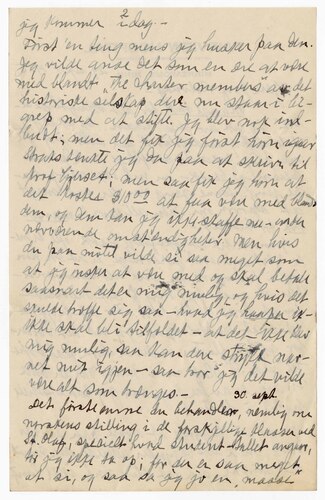 jeg kommer i dag.—
Först en ting mens jeg husker paa den.
Jeg vilde anse det som en ære at være
med blandt "the charter members" av det
historiske selskap dere nu staar i be-
grep med at stifte. Jeg blev nok ind-
budt; men det fik jeg först høre igaar
Straks tænkte jeg da paa at skrive til
Prof. ; men saa fik jeg høre at
det kostet $10.00 at faa være med blandt
dem, og dem kan jeg ikke skaffe nu under
nærværende omstændigheter. Men hvis
du paa møtet vilde si saa meget som
at jeg ønsker at være med og skal betale
saasnart det er mig mulig, og hvis det
skulde træffe sig saa — hvad jeg haaper ik-
ke skal bli tilfældet — at det ikke blev
mig mulig, saa kan dere stryke nav-
net mit igjen — saa tror jeg det vilde
være alt som trænges.—
30 sept.
Det förste emne du behandler, nemlig om
norskens stilling i de forskjellige klasser ved
St. Olaf, specielt hvad student-tallet angaar,
tør jeg ikke ta op; for der er saa meget
at si, og saa sa jeg jo en, "maade"